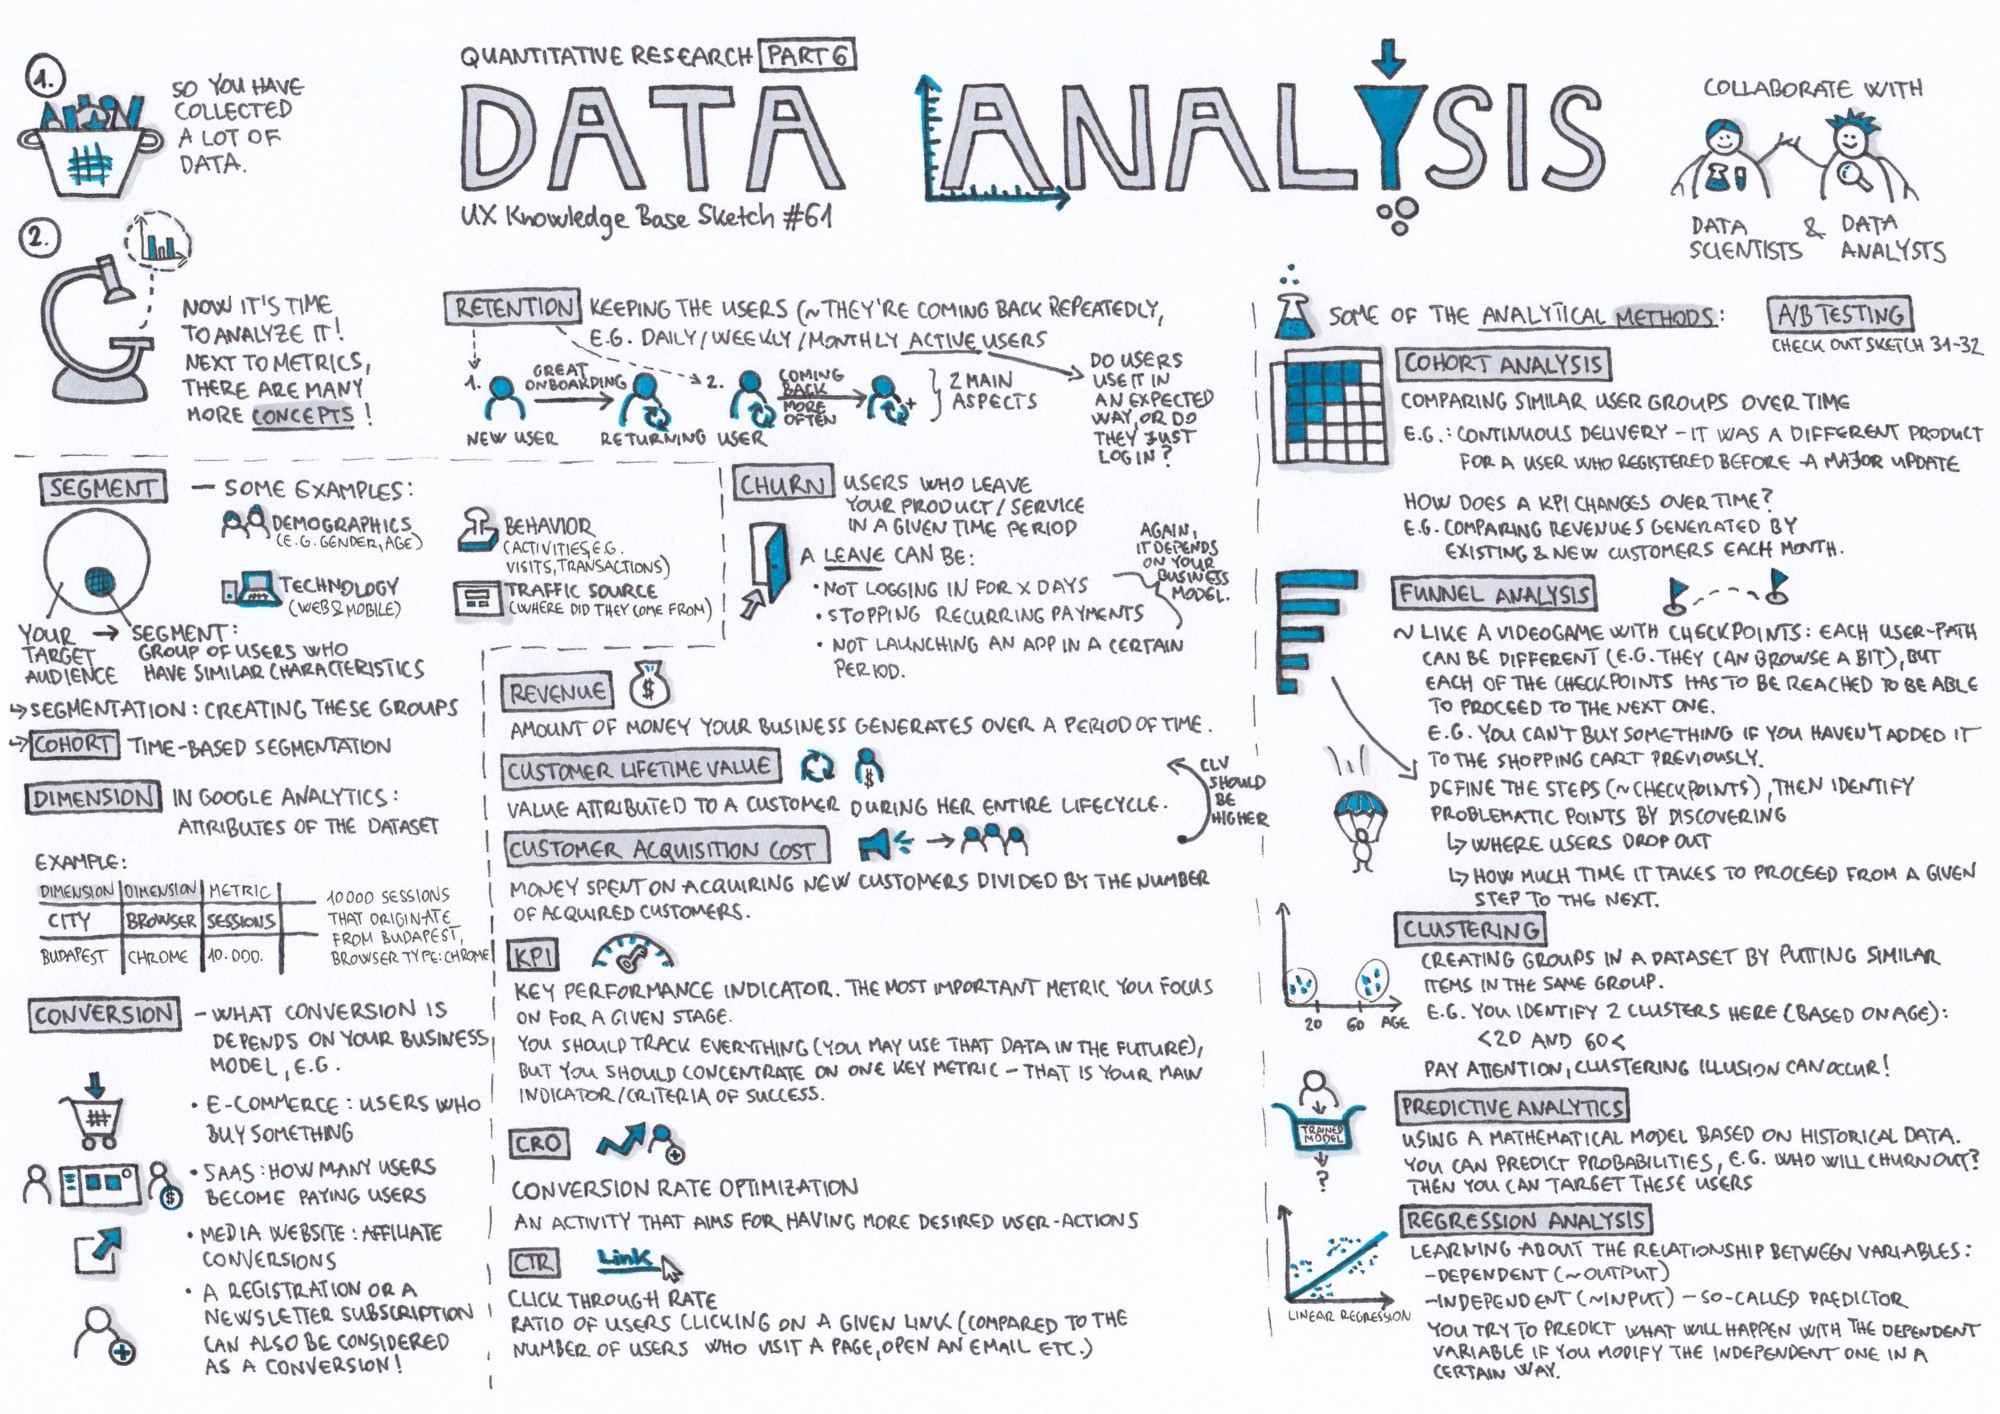 1.
SO YOU HAVE
COLLECTED
A LOT OF
DATA.
QUANTITATIVE RESEARCH PART 6
DATA ANALYSIS
UX Knowledge Base Sketch #61
COLLABORATE WITH
DATA SCIENTISTS & DATA ANALYSTS
2.
NOW IT'S TIME
TO ANALYZE IT!
NEXT TO METRICS,
THERE ARE MANY
MORE CONCEPTS!
RETENTION KEEPING THE USERS (~THEY'RE COMING BACK REPEATEDLY,
E.G. DAILY/WEEKLY/MONTHLY ACTIVE USERS
1.
GREAT
ONBOARDING
2.
COMING
BACK
MORE
OFTEN
+
2 MAIN
ASPECTS
NEW USER
RETURNING USER
DO USERS
USE IT IN
AN EXPECTED
WAY, OR DO
THEY JUST
LOG IN?
SEGMENT – SOME EXAMPLES:
DEMOGRAPHICS
(E.G. GENDER, AGE)
BEHAVIOR
(ACTIVITIES, E.G.
VISITS, TRANSACTIONS)
TECHNOLOGY
(WEB & MOBILE)
TRAFFIC SOURCE
(WHERE DID THEY COME FROM)
YOUR
TARGET
AUDIENCE
SEGMENT:
GROUP OF USERS WHO
HAVE SIMILAR CHARACTERISTICS
SEGMENTATION: CREATING THESE GROUPS
COHORT TIME-BASED SEGMENTATION
DIMENSION IN GOOGLE ANALYTICS:
ATTRIBUTES OF THE DATASET
EXAMPLE:
DIMENSION DIMENSION METRIC
CITY BROWSER SESSIONS
BUDAPEST CHROME 10.000.
10000 SESSIONS
THAT ORIGINATE
FROM BUDAPEST,
BROWSER TYPE: CHROME
CONVERSION – WHAT CONVERSION IS
DEPENDS ON YOUR BUSINESS
MODEL, E.G.
• E-COMMERCE: USERS WHO
BUY SOMETHING
• SAAS: HOW MANY USERS
BECOME PAYING USERS
$
• MEDIA WEBSITE: AFFILIATE
CONVERSIONS
• A REGISTRATION OR A
NEWSLETTER SUBSCRIPTION
CAN ALSO BE CONSIDERED
AS A CONVERSION!
CHURN USERS WHO LEAVE
YOUR PRODUCT/SERVICE
IN A GIVEN TIME PERIOD
A LEAVE CAN BE:
• NOT LOGGING IN FOR X DAYS
• STOPPING RECURRING PAYMENTS
• NOT LAUNCHING AN APP IN A CERTAIN
PERIOD.
AGAIN,
IT DEPENDS
ON YOUR
BUSINESS
MODEL.
REVENUE $
AMOUNT OF MONEY YOUR BUSINESS GENERATES OVER A PERIOD OF TIME.
CUSTOMER LIFETIME VALUE $
VALUE ATTRIBUTED TO A CUSTOMER DURING HER ENTIRE LIFECYCLE.
CLV
SHOULD
BE
HIGHER
CUSTOMER ACQUISITION COST
MONEY SPENT ON ACQUIRING NEW CUSTOMERS DIVIDED BY THE NUMBER
OF ACQUIRED CUSTOMERS.
KPI
KEY PERFORMANCE INDICATOR. THE MOST IMPORTANT METRIC YOU FOCUS
ON FOR A GIVEN STAGE.
YOU SHOULD TRACK EVERYTHING (YOU MAY USE THAT DATA IN THE FUTURE),
BUT YOU SHOULD CONCENTRATE ON ONE KEY METRIC – THAT IS YOUR MAIN
INDICATOR/CRITERIA OF SUCCESS.
CRO
CONVERSION RATE OPTIMIZATION
AN ACTIVITY THAT AIMS FOR HAVING MORE DESIRED USER-ACTIONS
CTR Link
CLICK THROUGH RATE
RATIO OF USERS CLICKING ON A GIVEN LINK (COMPARED TO THE
NUMBER OF USERS WHO VISIT A PAGE, OPEN AN EMAIL ETC.)
SOME OF THE ANALYTICAL METHODS:
A/B TESTING
CHECK OUT SKETCH 31-32
COHORT ANALYSIS
COMPARING SIMILAR USER GROUPS OVER TIME
E.G.: CONTINUOUS DELIVERY – IT WAS A DIFFERENT PRODUCT
FOR A USER WHO REGISTERED BEFORE A MAJOR UPDATE
HOW DOES A KPI CHANGES OVER TIME?
E.G. COMPARING REVENUES GENERATED BY
EXISTING & NEW CUSTOMERS EACH MONTH.
FUNNEL ANALYSIS
~ LIKE A VIDEOGAME WITH CHECKPOINTS: EACH USER-PATH
CAN BE DIFFERENT (E.G. THEY CAN BROWSE A BIT), BUT
EACH OF THE CHECKPOINTS HAS TO BE REACHED TO BE ABLE
TO PROCEED TO THE NEXT ONE.
E.G. YOU CAN'T BUY SOMETHING IF YOU HAVEN'T ADDED IT
TO THE SHOPPING CART PREVIOUSLY.
DEFINE THE STEPS (~CHECKPOINTS), THEN IDENTIFY
PROBLEMATIC POINTS BY DISCOVERING
WHERE USERS DROP OUT
HOW MUCH TIME IT TAKES TO PROCEED FROM A GIVEN
STEP TO THE NEXT.
CLUSTERING
CREATING GROUPS IN A DATASET BY PUTTING SIMILAR
ITEMS IN THE SAME GROUP.
E.G. YOU IDENTIFY 2 CLUSTERS HERE (BASED ON AGE):
<20 AND 60<
PAY ATTENTION, CLUSTERING ILLUSION CAN OCCUR!
20 60 AGE
PREDICTIVE ANALYTICS
USING A MATHEMATICAL MODEL BASED ON HISTORICAL DATA.
YOU CAN PREDICT PROBABILITIES, E.G. WHO WILL CHURN OUT?
THEN YOU CAN TARGET THESE USERS
TRAINED
MODEL
?
REGRESSION ANALYSIS
LEARNING ABOUT THE RELATIONSHIP BETWEEN VARIABLES:
-DEPENDENT (~OUTPUT)
-INDEPENDENT (~INPUT) – SO-CALLED PREDICTOR
YOU TRY TO PREDICT WHAT WILL HAPPEN WITH THE DEPENDENT
VARIABLE IF YOU MODIFY THE INDEPENDENT ONE IN A
CERTAIN WAY.
LINEAR REGRESSION